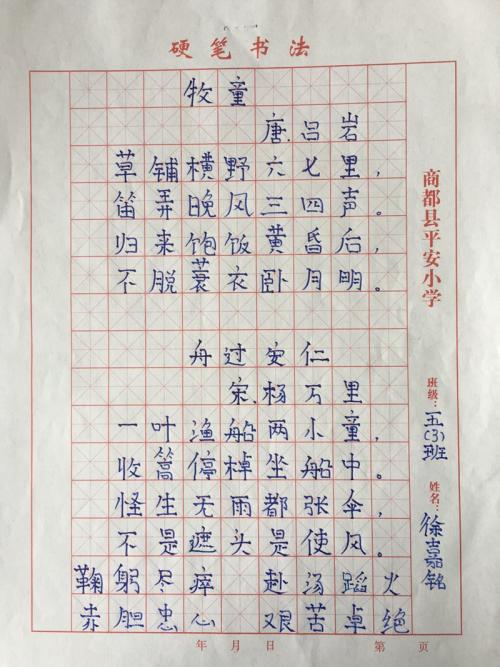 硬笔书法
牧童
唐.吕岩
草铺横野六七里,
笛弄晚风三四声。
归来饱饭黄昏后,
不脱蓑衣卧月明。
舟过安仁
宋.杨万里
一叶渔船两小童,
收篙停棹坐船中。
怪生无雨都张伞,
不是遮头是使风。
鞠躬尽瘁 赴汤蹈火
赤胆忠心 艰苦卓绝
年 月 日 第 页
商都县平安小学
班级:五(3)班 姓名:徐嘉铭